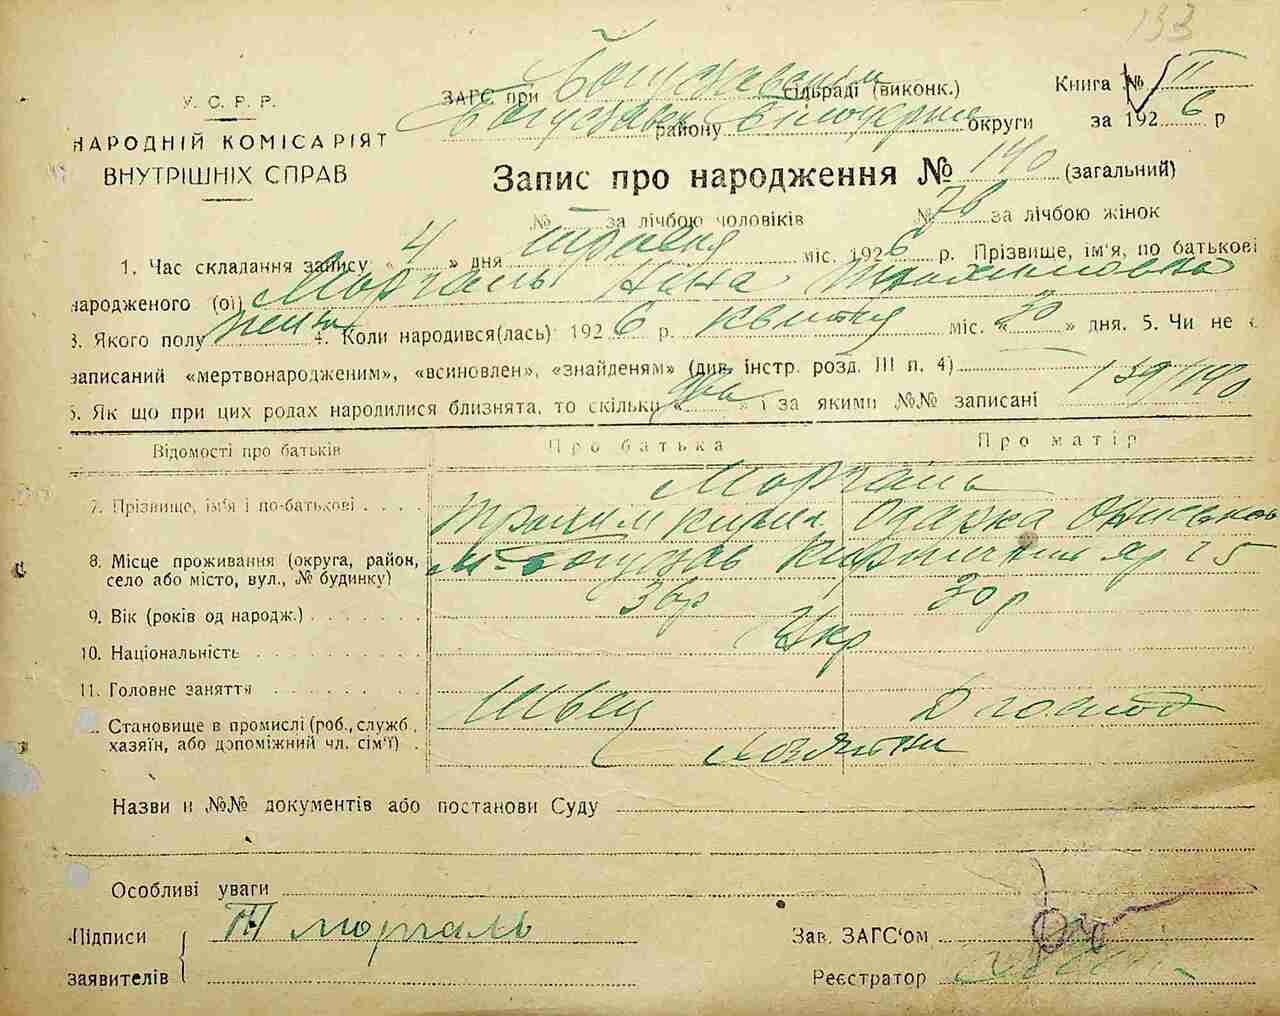 133
У. С. Р. Р.
НАРОДНІЙ КОМІСАРІЯТ
ВНУТРІШНІХ СПРАВ
ЗАГС при Богуславськім сільраді (виконк.)
Богуславськ району Білоцерків округи
Книга № III
за 1926 р
Запис про народження № 140 (загальний)
№ за лічбою чоловіків № 78 за лічбою жінок
1. Час складання запису « 4 » дня травня міс. 1926 р. Прізвище, ім'я, по батькові
народженого (ої) Моргаль Ніна Трохимовна
3. Якого полу жін. 4. Коли народився(лась) 1926 р. квітня міс. « 30 » дня. 5. Чи не
записаний «мертвонародженим», «всиновлен», «знайденям» (див. інстр. розд. III п. 4)
6. Як що при цих родах народилися близнята, то скільки « два » і за якими №№ записані 139/140
Відомості про батьків Про батька Про матір
Моргаль
7. Прізвище, ім'я і по-батькові Трохим Кирил. Одарка Ониськов
8. Місце проживання (округа, район, село або місто, вул., № будинку) м. Богуслав яр 25
9. Вік (років од народж.) 36 р 30 р
10. Національність Укр
11. Головне заняття Швец Д господ
Становище в промислі (роб., служб. хазяїн, або допоміжний чл. сім'ї)
Назви и №№ документів або постанови Суду
Особливі уваги
Підписи заявителів Т Моргаль
Зав. ЗАГС'ом
Реєстратор